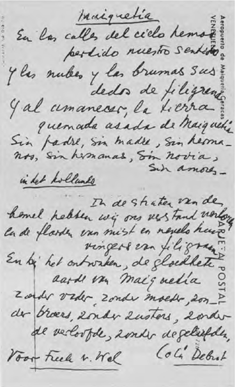 Maiquetia
En las calles del cielo hemos
perdido nuestro sentido
y las nubes y las brumas sus
dedos de filigrana
y al amanecer, la tierra
quemada asada de Maiquetía
Sin padre, sin madre, sin herma-
nos, sin hermanas, sin novia,
sin amores—
in het hollands
In de straten van de
hemel hebben wij ons verstand verloren
en de flarden van mist en nevels hun
vingers van filigraan
En bij het ontwaken, de geblakerde
aarde van Maiquetia
zonder vader, zonder moeder, zon-
der broers, zonder zusters, zonder
de verloofde, zonder de geliefden,
Voor Freek v. Wel
Cola Debrot
Aeropuerto de Maiquetía
VENEZUELA
TARJETA POSTAL